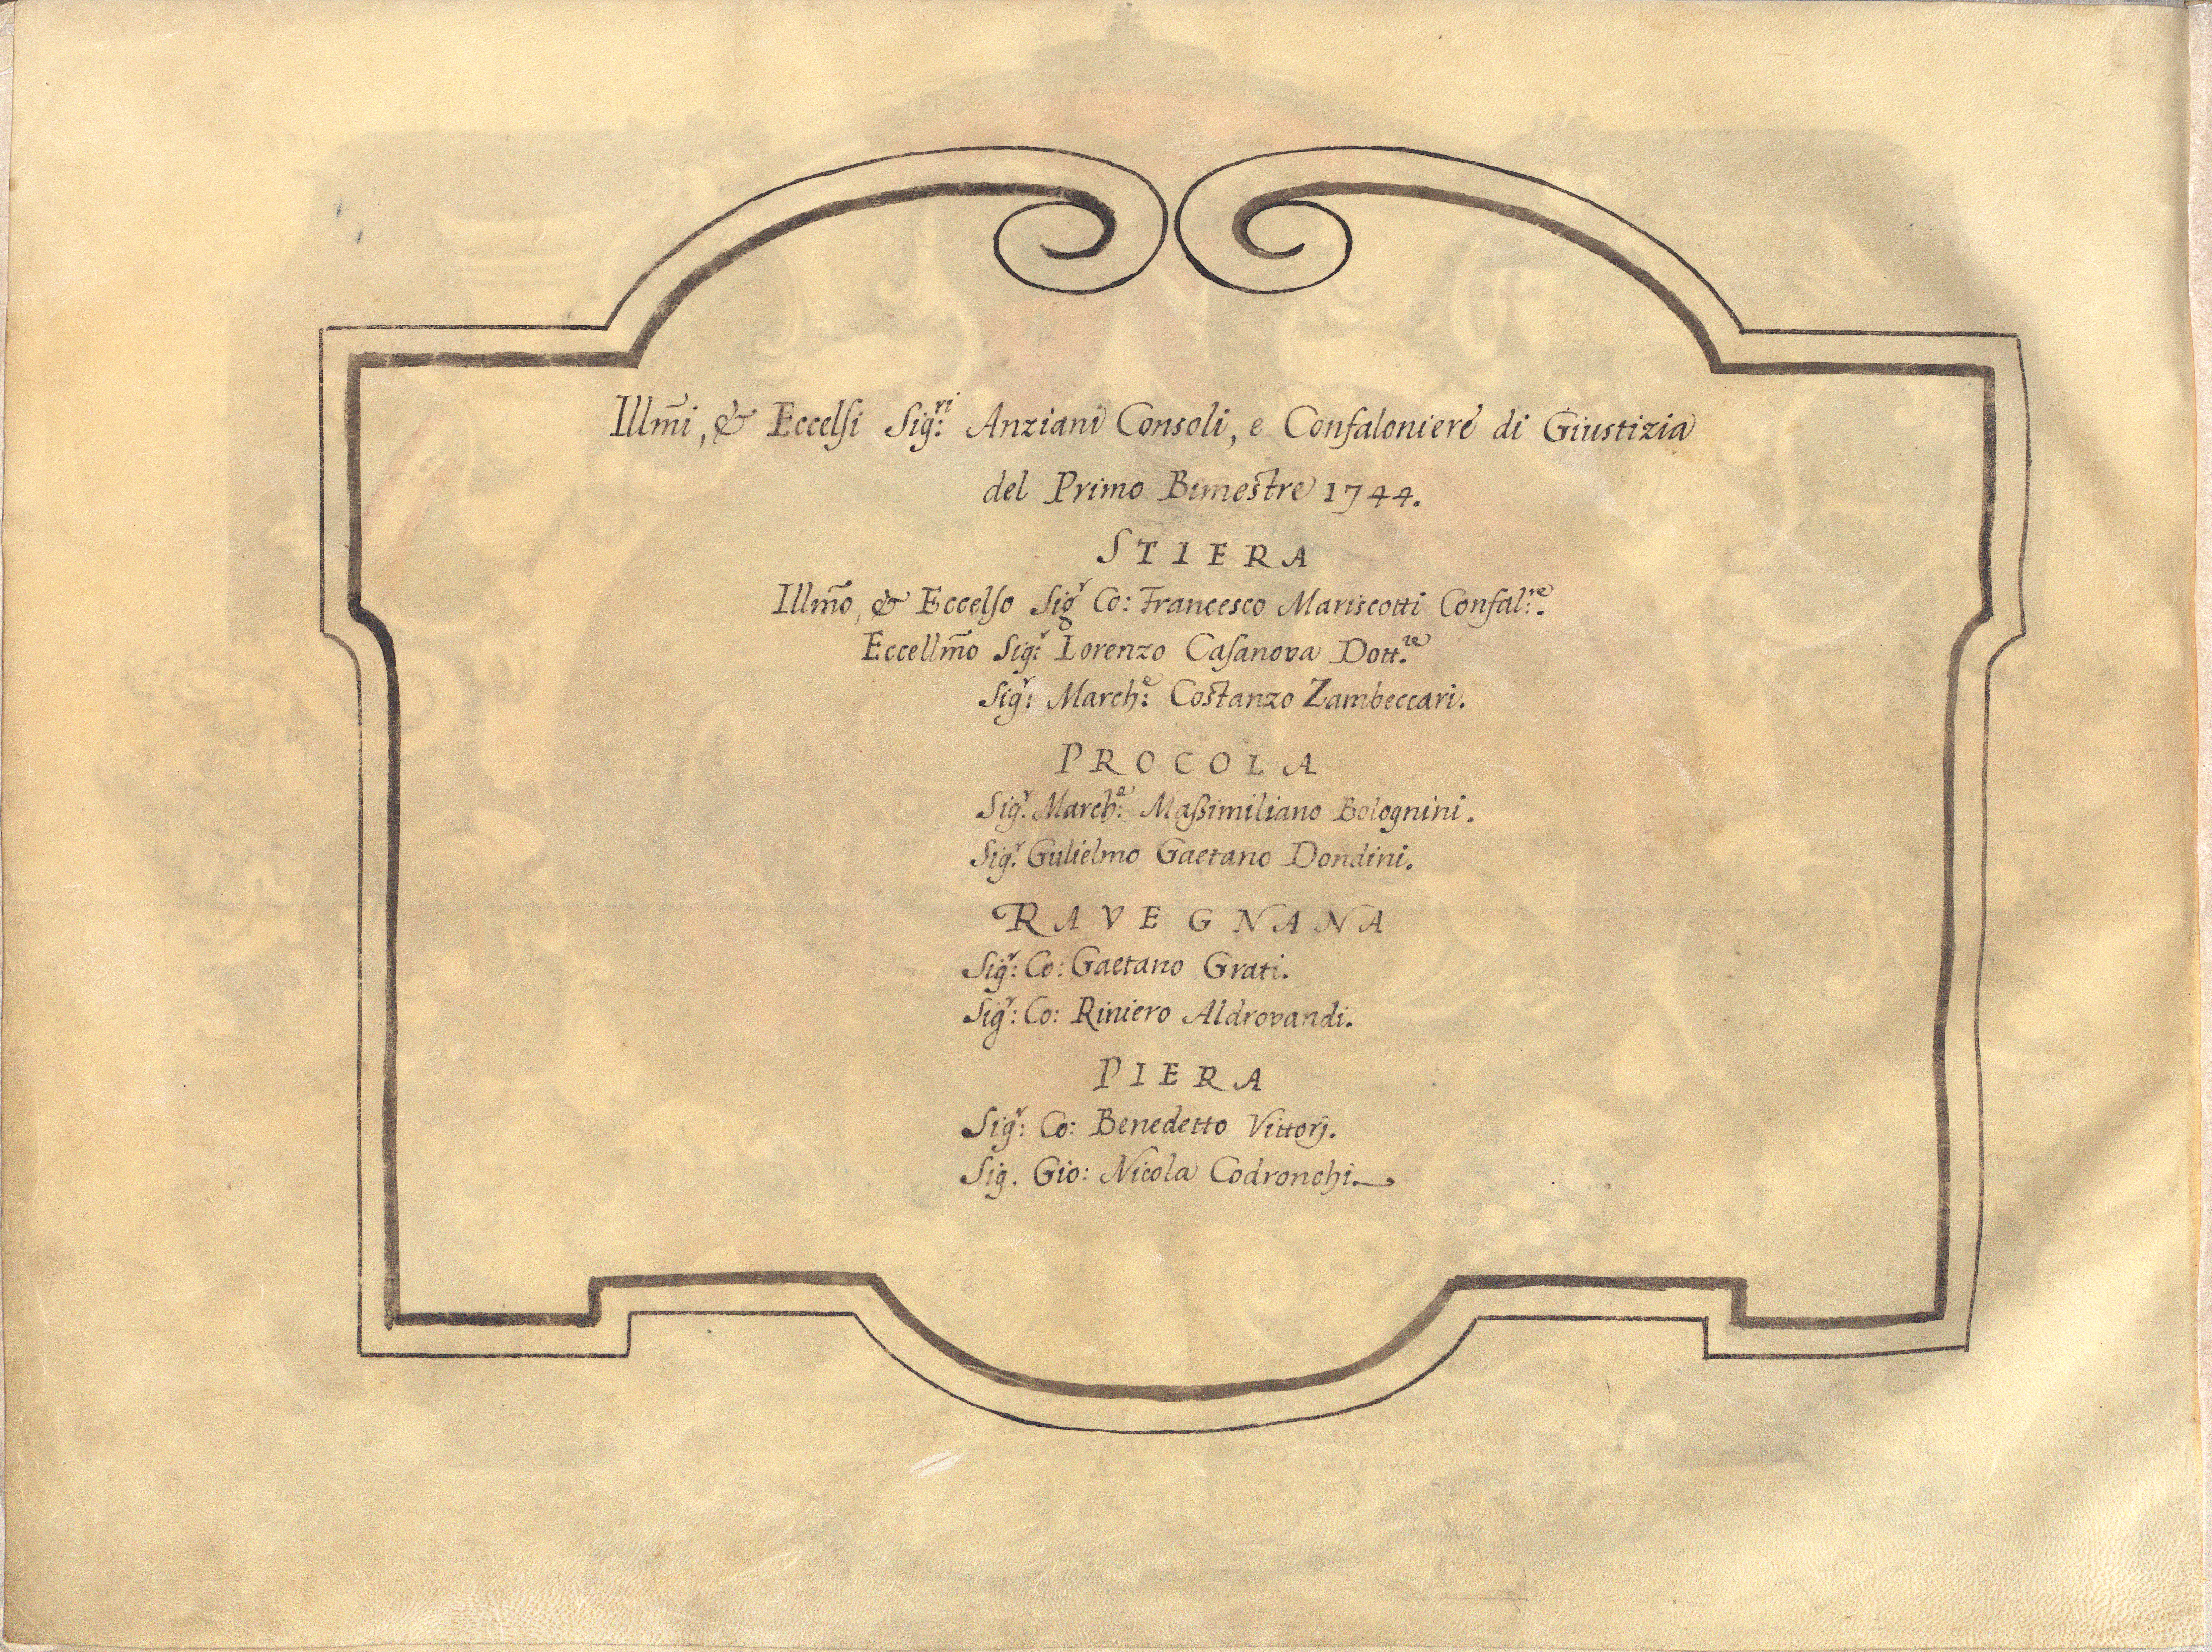 Illm̃i, & Eccelſi Sig:ri Anziani Consoli, e Confaloniere di Giustizia
del Primo Bimestre 1744.
STIERA
Illm̃o, & Eccelſo Sigr Co: Francesco Mariscotti Confal:re.
Eccellm̃o Sig:r Lorenzo Caſanova Dott.re
Sig:r March:e Costanzo Zambeccari.
PROCOLA
Sig:r March:e Maßimiliano Bolognini.
Sig:r Gulielmo Gaetano Dondini.
RAVEGNANA
Sig:r Co: Gaetano Grati.
Sig:r Co: Riniero Aldrovandi.
PIERA
Sig:r Co: Benedetto Vittorj.
Sig. Gio: Nicola Codronchi.